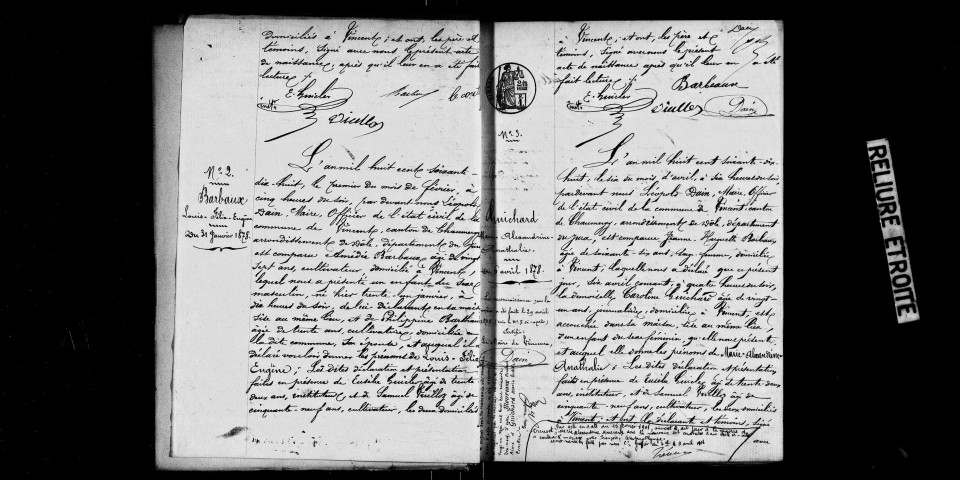 domiciliés à Vincent; et ont, les père et
témoins, signé avec nous le présent acte
de naissance, après qu'il leur en a été fait
lecture.
E. Guichez
Vuillez
N° 2.
Barbaux
Louis-Félix-Eugène
Du 31 Janvier 1878.
L'an mil huit cent soixante-
dix-huit, le premier du mois de février, à
cinq heures du soir, par devant nous Léopold
Dain, Maire, Officier de l'état civil de la
commune de Vincent, canton de Chaumergy,
arrondissement de Dôle, département du Jura
est comparu Amédée Barbaux, âgé de vingt
sept ans, cultivateur, domicilié à Vincent,
lequel nous a présenté un enfant du sexe
masculin, né hier trente un janvier, à
dix heures du soir, de lui déclarant en sa mai-
sise au même lieu, et de Philippine Barbaux
âgée de trente ans, cultivatrice, domiciliée à
la dite commune, son épouse, et auquel il a
déclaré vouloir donner les prénoms de Louis-Félix
Eugène; Les dites déclaration et présentation
faites en présence de Eusèbe Guichez âgé de trente
deux ans, instituteur, et de Samuel Vuillez âgé de
cinquante-neuf ans, cultivateur, les deux domiciliés
à Vincent; et ont, les père et
témoins, signé avec nous le présent
acte de naissance après qu'il leur en a été
fait lecture.
Barbeaux
E. Guichez
Vuillez
Dain
N° 3.
Guichard
Marie-Alexandrine-
Anathalie.
6 avril 1878.
L'an mil huit cent soixante-dix-
huit, le six du mois d'avril, à six heures du soir
par devant nous Léopold Dain, Maire, Officier
de l'état civil de la commune de Vincent, canton
de Chaumergy, arrondissement de Dôle, département
du Jura, est comparue Jeanne-Huguette Barbaux
âgée de soixante-six ans, sage-femme, domiciliée
à Vincent, laquelle nous a déclaré que ce présent
jour, six avril courant, à quatre heures du soir,
la demoiselle, Caroline Guichard âgée de vingt-
un ans, journalière, domiciliée à Vincent, est
accouchée dans la maison, sise au même lieu,
d'un enfant du sexe féminin, qu'elle nous présente
et auquel elle donne les prénoms de Marie-Alexandrine-
Anathalie; Les dites déclaration et présentation
faites en présence de Eusèbe Guichez âgé de trente-deux
ans, instituteur, et de Samuel Vuillez âgé de
cinquante-neuf ans, cultivateur, les deux domiciliés
à Vincent, et ont les déclarante et témoins, signé
avec
Dain
RELIURE ETROITE